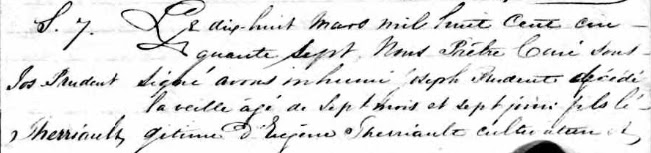 S. 7. Le dix-huit mars mil huit cent cin-
quante sept, Nous Prêtre Curé sous-
Jos Prudent signé avons inhumé Joseph Prudent décédé
la veille agé de sept mois et sept jours fils lé-
Therriault gitime d'Eugène Therriault cultivateur et